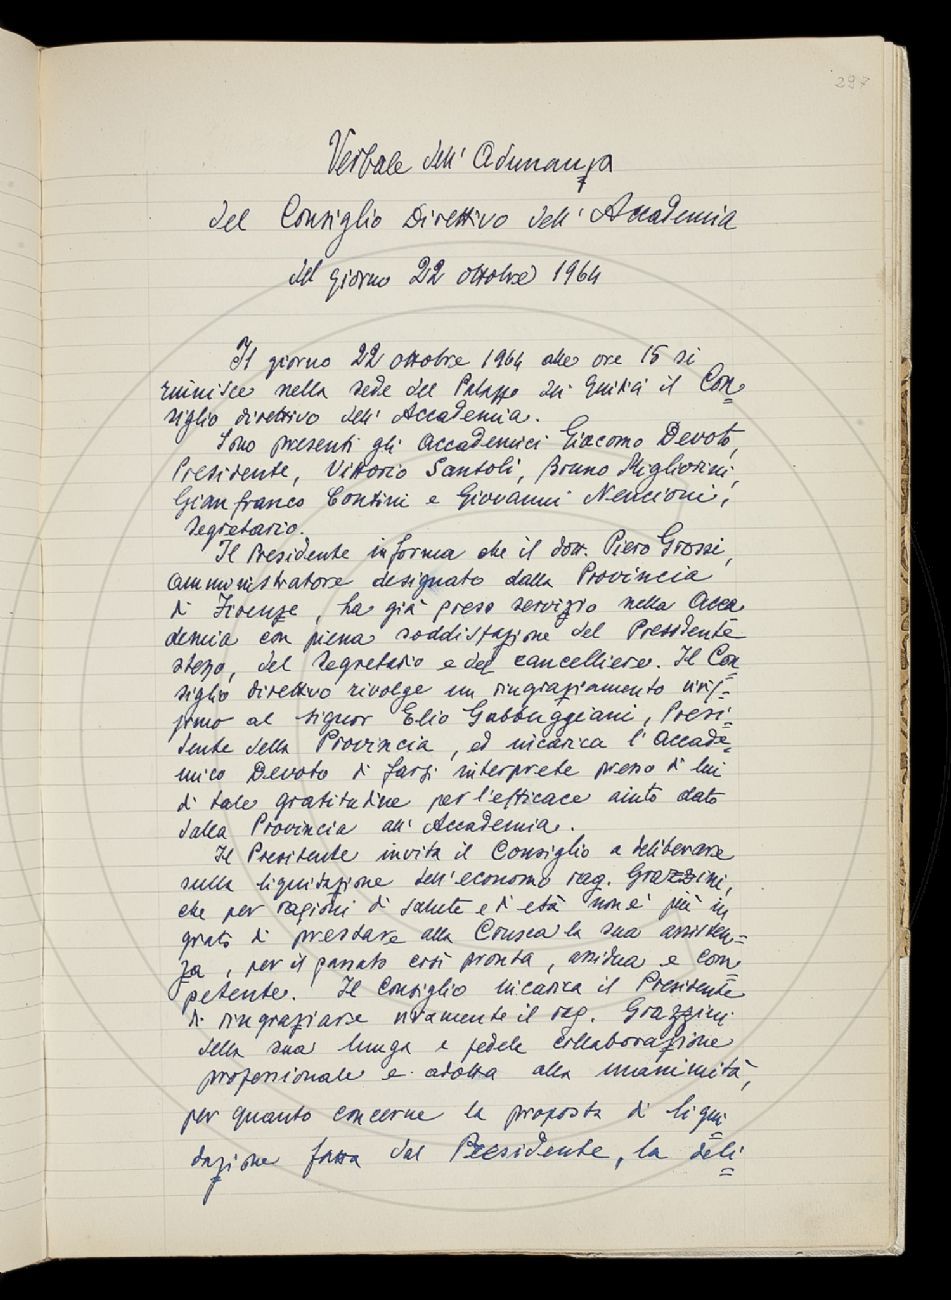 297
Verbale dell'Adunanza
del Consiglio Direttivo dell'Accademia
del giorno 22 ottobre 1964
Il giorno 22 ottobre 1964 alle ore 15 si
riunisce nella sede del Palazzo dei Giudici il Con=
siglio direttivo dell'Accademia.
Sono presenti gli Accademici Giacomo Devoto,
Presidente, Vittorio Santoli, Bruno Migliorini,
Gianfranco Contini e Giovanni Nencioni,
segretario.
Il Presidente informa che il dott. Piero Grossi,
amministratore designato dalla Provincia
di Firenze, ha già preso servizio nella Acca=
demia con piena soddisfazione del Presidente
stesso, del segretario e del cancelliere. Il Con=
siglio direttivo rivolge un ringraziamento vivis=
simo al signor Elio Gabbuggiani, Presi=
dente della Provincia, ed incarica l'Accade=
mico Devoto di farsi interprete presso di lui
di tale gratitudine per l'efficace aiuto dato
dalla Provincia all'Accademia.
Il Presidente invita il Consiglio a deliberare
sulla liquidazione dell'economo rag. Grazzini,
che per ragioni di salute e di età non è più in
grado di prestare alla Crusca la sua assisten=
za, per il passato così pronta, assidua e com=
petente. Il Consiglio incarica il Presidente
di ringraziare vivamente il rag. Grazzini
della sua lunga e fedele collaborazione
professionale e adotta alla unanimità,
per quanto concerne la proposta di liqui=
dazione fatta dal Presidente, la deli=